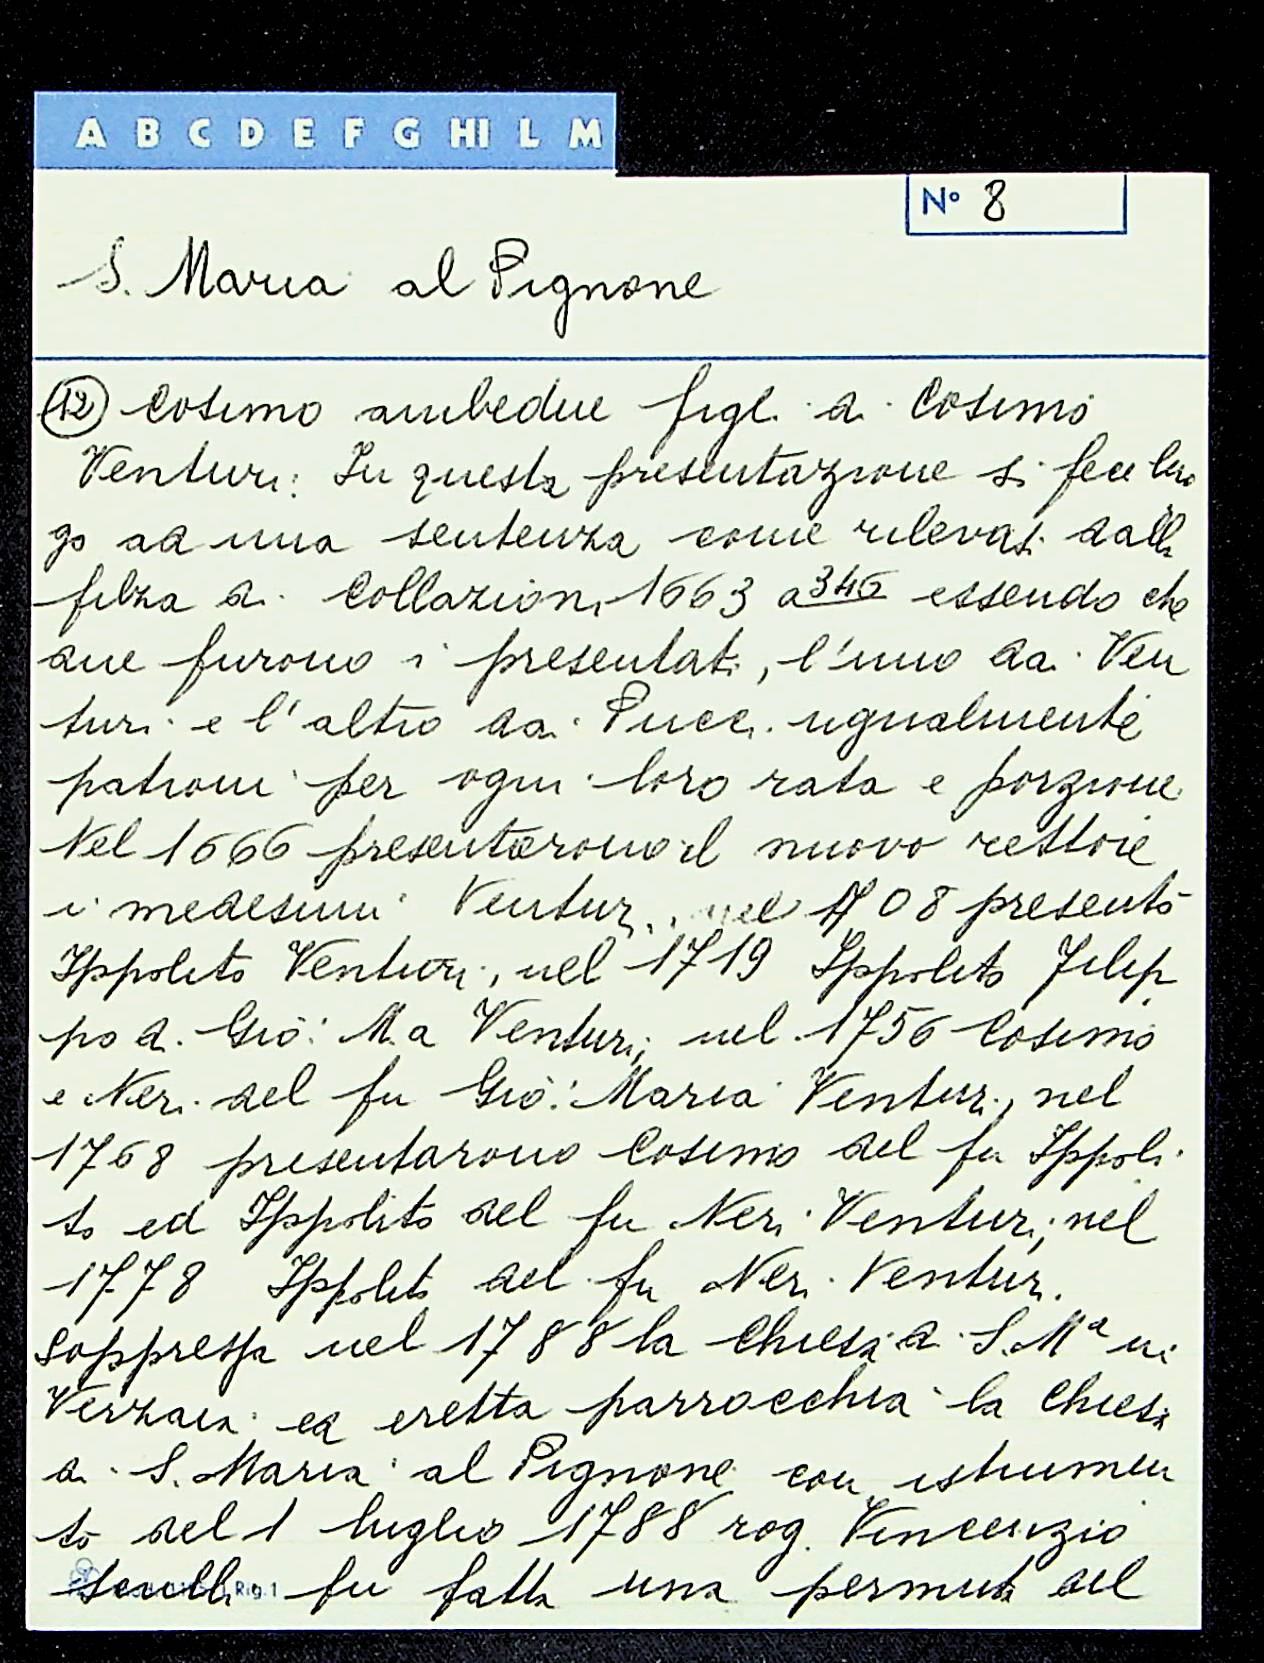 A B C D E F G HI L M
N° 8
S. Maria al Pignone
(12) Cosimo ambedue figli di Cosimo
Venturi. In questa presentazione si fece luo
go ad una sentenza come rilevasi dalla
filza di Collazioni 1663 a 346 essendo che
due furono i presentati, l'uno dai Ven
turi e l'altro dai Pucci ugualmente
patroni per ogni loro rata e porzione.
Nel 1666 presentarono il nuovo rettore
i medesimi Venturi, nel 1708 presentò
Ippolito Venturi, nel 1719 Ippolito Filip
po di Giò: M.a Venturi, nel 1756 Cosimo
e Neri del fu Giò: Maria Venturi, nel
1768 presentarono Cosimo del fu Ippoli
to ed Ippolito del fu Neri Venturi; nel
1778 Ippolito del fu Neri Venturi.
Soppressa nel 1788 la Chiesa di S. Mª in
Verzaia ed eretta parrocchia la Chiesa
di S. Maria al Pignone con istrumen
to del 1 luglio 1788 rog. Vincenzio
fu fatta una permuta del
Rig. 1